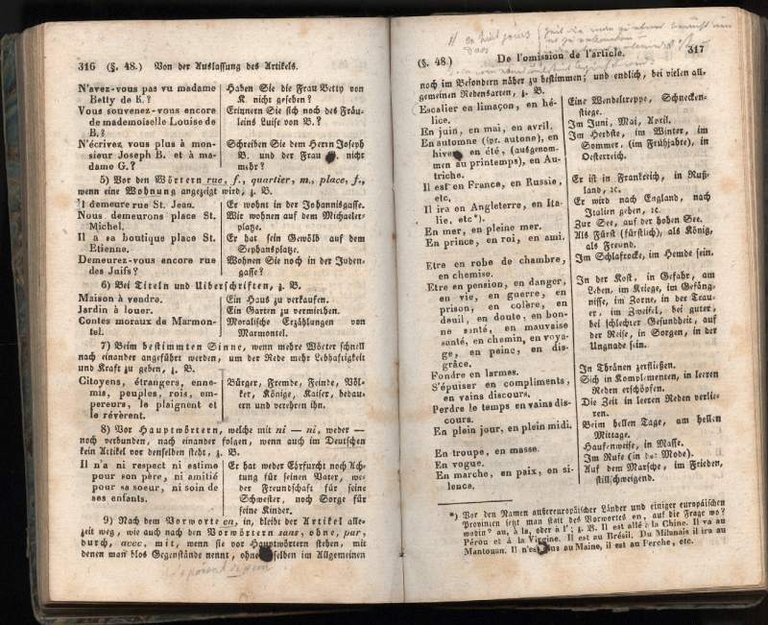 316 (§. 48.) Von der Auslassung des Artikels.
N'avez-vous pas vu madame
Betty de K.?
Vous souvenez-vous encore
de mademoiselle Louise de
B.?
N'écrivez vous plus à mon-
sieur Joseph B. et à ma-
dame G.?
Haben Sie die Frau Betty von
K. nicht gesehen?
Erinnern Sie sich noch des Fräu-
leins Luise von B.?
Schreiben Sie dem Herrn Joseph
B. und der Frau nicht
mehr?
5) Vor den Wörtern rue, f., quartier, m., place, f.,
wenn eine Wohnung angezeigt wird, z. B.
J demeure rue St. Jean.
Nous demeurons place St.
Michel.
Il a sa boutique place St.
Etienne.
Demeurez-vous encore rue
des Juifs?
Er wohnt in der Johannsgasse.
Wir wohnen auf dem Michaeler-
platze.
Er hat sein Gewölb auf dem
Sephansplatze.
Wohnen Sie noch in der Juden-
gasse?
6) Bei Titeln und Uiberschriften, z. B.
Maison à vendre.
Jardin à louer.
Contes moraux de Marmon-
tel.
Ein Haus zu verkaufen.
Ein Garten zu vermiethen.
Moralische Erzählungen von
Marmontel.
7) Beim bestimmten Sinne, wenn mehre Wörter schnell
nach einander angeführt werden, um der Rede mehr Lebhaftigkeit
und Kraft zu geben, z. B.
Citoyens, étrangers, enne-
mis, peuples, rois, em-
pereurs, le plaignent et
le révèrent.
Bürger, Fremde, Feinde, Völ-
ker, Könige, Kaiser, bedau-
ern und verehren ihn.
8) Vor Hauptwörtern, welche mit ni — ni, weder —
noch verbunden, nach einander folgen, wenn auch im Deutschen
kein Artikel vor denselben steht, z. B.
Il n'a ni respect ni estime
pour son père, ni amitié
pour sa soeur, ni soin de
ses enfants.
Er hat weder Ehrfurcht noch Ach-
tung für seinen Vater, we-
der Freundschaft für seine
Schwester, noch Sorge für
seine Kinder.
9) Nach dem Vorworte en, in, bleibt der Artikel alle-
zeit weg, wie auch nach den Vorwörtern sans, ohne, par,
durch, avec, mit, wenn sie vor Hauptwörtern stehen, mit
denen man blos Gegenstände nennt, ohne selben im Allgemeinen
(§. 48.) De l'omission de l'article. 317
noch im Besondern näher zu bestimmen; und endlich, bei vielen all-
gemeinen Redensarten, z. B.
Escalier en limaçon, en hé-
lice.
En juin, en mai, en avril.
En automne (spr. autone), en
hiver en été, (ausgenom-
men au printemps), en Au-
triche.
Il est en France, en Russie,
etc.
Il ira en Angleterre, en Ita-
lie, etc *).
En mer, en pleine mer.
En prince, en roi, en ami.
Etre en robe de chambre,
en chemise.
Etre en pension, en danger,
en vie, en guerre, en
prison, en colère, en
deuil, en doute, en bon-
ne santé, en mauvaise
santé, en chemin, en voya-
ge, en peine, en dis-
grâce.
Fondre en larmes.
S'épuiser en compliments,
en vains discours.
Perdre le temps en vains dis-
cours.
En plein jour, en plein midi.
En troupe, en masse.
En vogue.
En marche, en paix, en si-
lence,
Eine Wendeltreppe, Schnecken-
stiege.
Im Juni, Mai, April.
Im Herbste, im Winter, im
Sommer, (im Frühjahre), in
Oesterreich.
Er ist in Frankreich, in Ruß-
land, ec.
Er wird nach England, nach
Italien gehen, ec.
Zur See, auf der hohen See.
Als Fürst (fürstlich), als König,
als Freund.
Im Schlafrocke, im Hemde sein.
In der Kost, in Gefahr, am
Leben, im Kriege, im Gefäng-
nisse, im Zorne, in der Trau-
er, im Zweifel, bei guter,
bei schlechter Gesundheit, auf
der Reise, in Sorgen, in der
Ungnade sein.
In Thränen zerfließen.
Sich in Komplimenten, in leeren
Reden erschöpfen.
Die Zeit in leeren Reden verlie-
ren.
Beim hellen Tage, am hellen
Mittage.
Haufenweise, in Masse.
Im Rufe (in der Mode).
Auf dem Marsche, im Frieden,
stillschweigend.
*) Vor den Namen außereuropäischer Länder und einiger europäischen
Provinzen setzt man statt des Vorwortes en, auf die Frage wo?
wohin? au, à la, oder à l'; z. B. Il est allé à la Chine. Il va au
Pérou et à la Virgine. Il est au Brésil. Du Milanais il ira au
Mantouan. Il n'est plus au Maine, il est au Perche, etc.